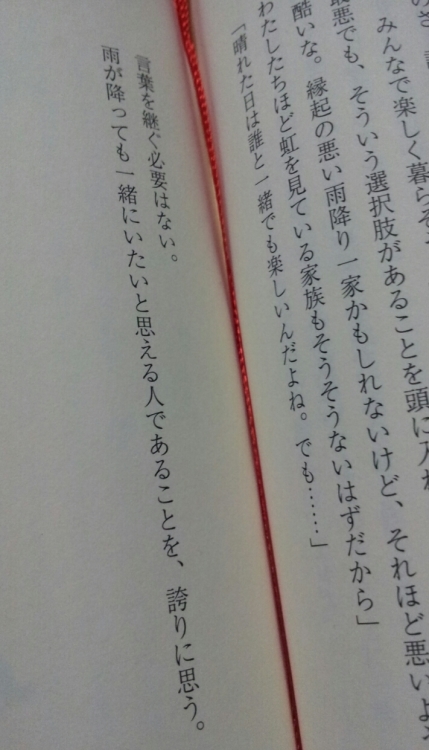 みんなで楽しく暮らそう
悪でも、そういう選択肢があることを頭に入れ
酷いな。縁起の悪い雨降り一家かもしれないけど、それほど悪いよ
わたしたちほど虹を見ている家族もそうそうないはずだから」
「晴れた日は誰と一緒でも楽しいんだよね。でも……」
言葉を継ぐ必要はない。
雨が降っても一緒にいたいと思える人であることを、誇りに思う。